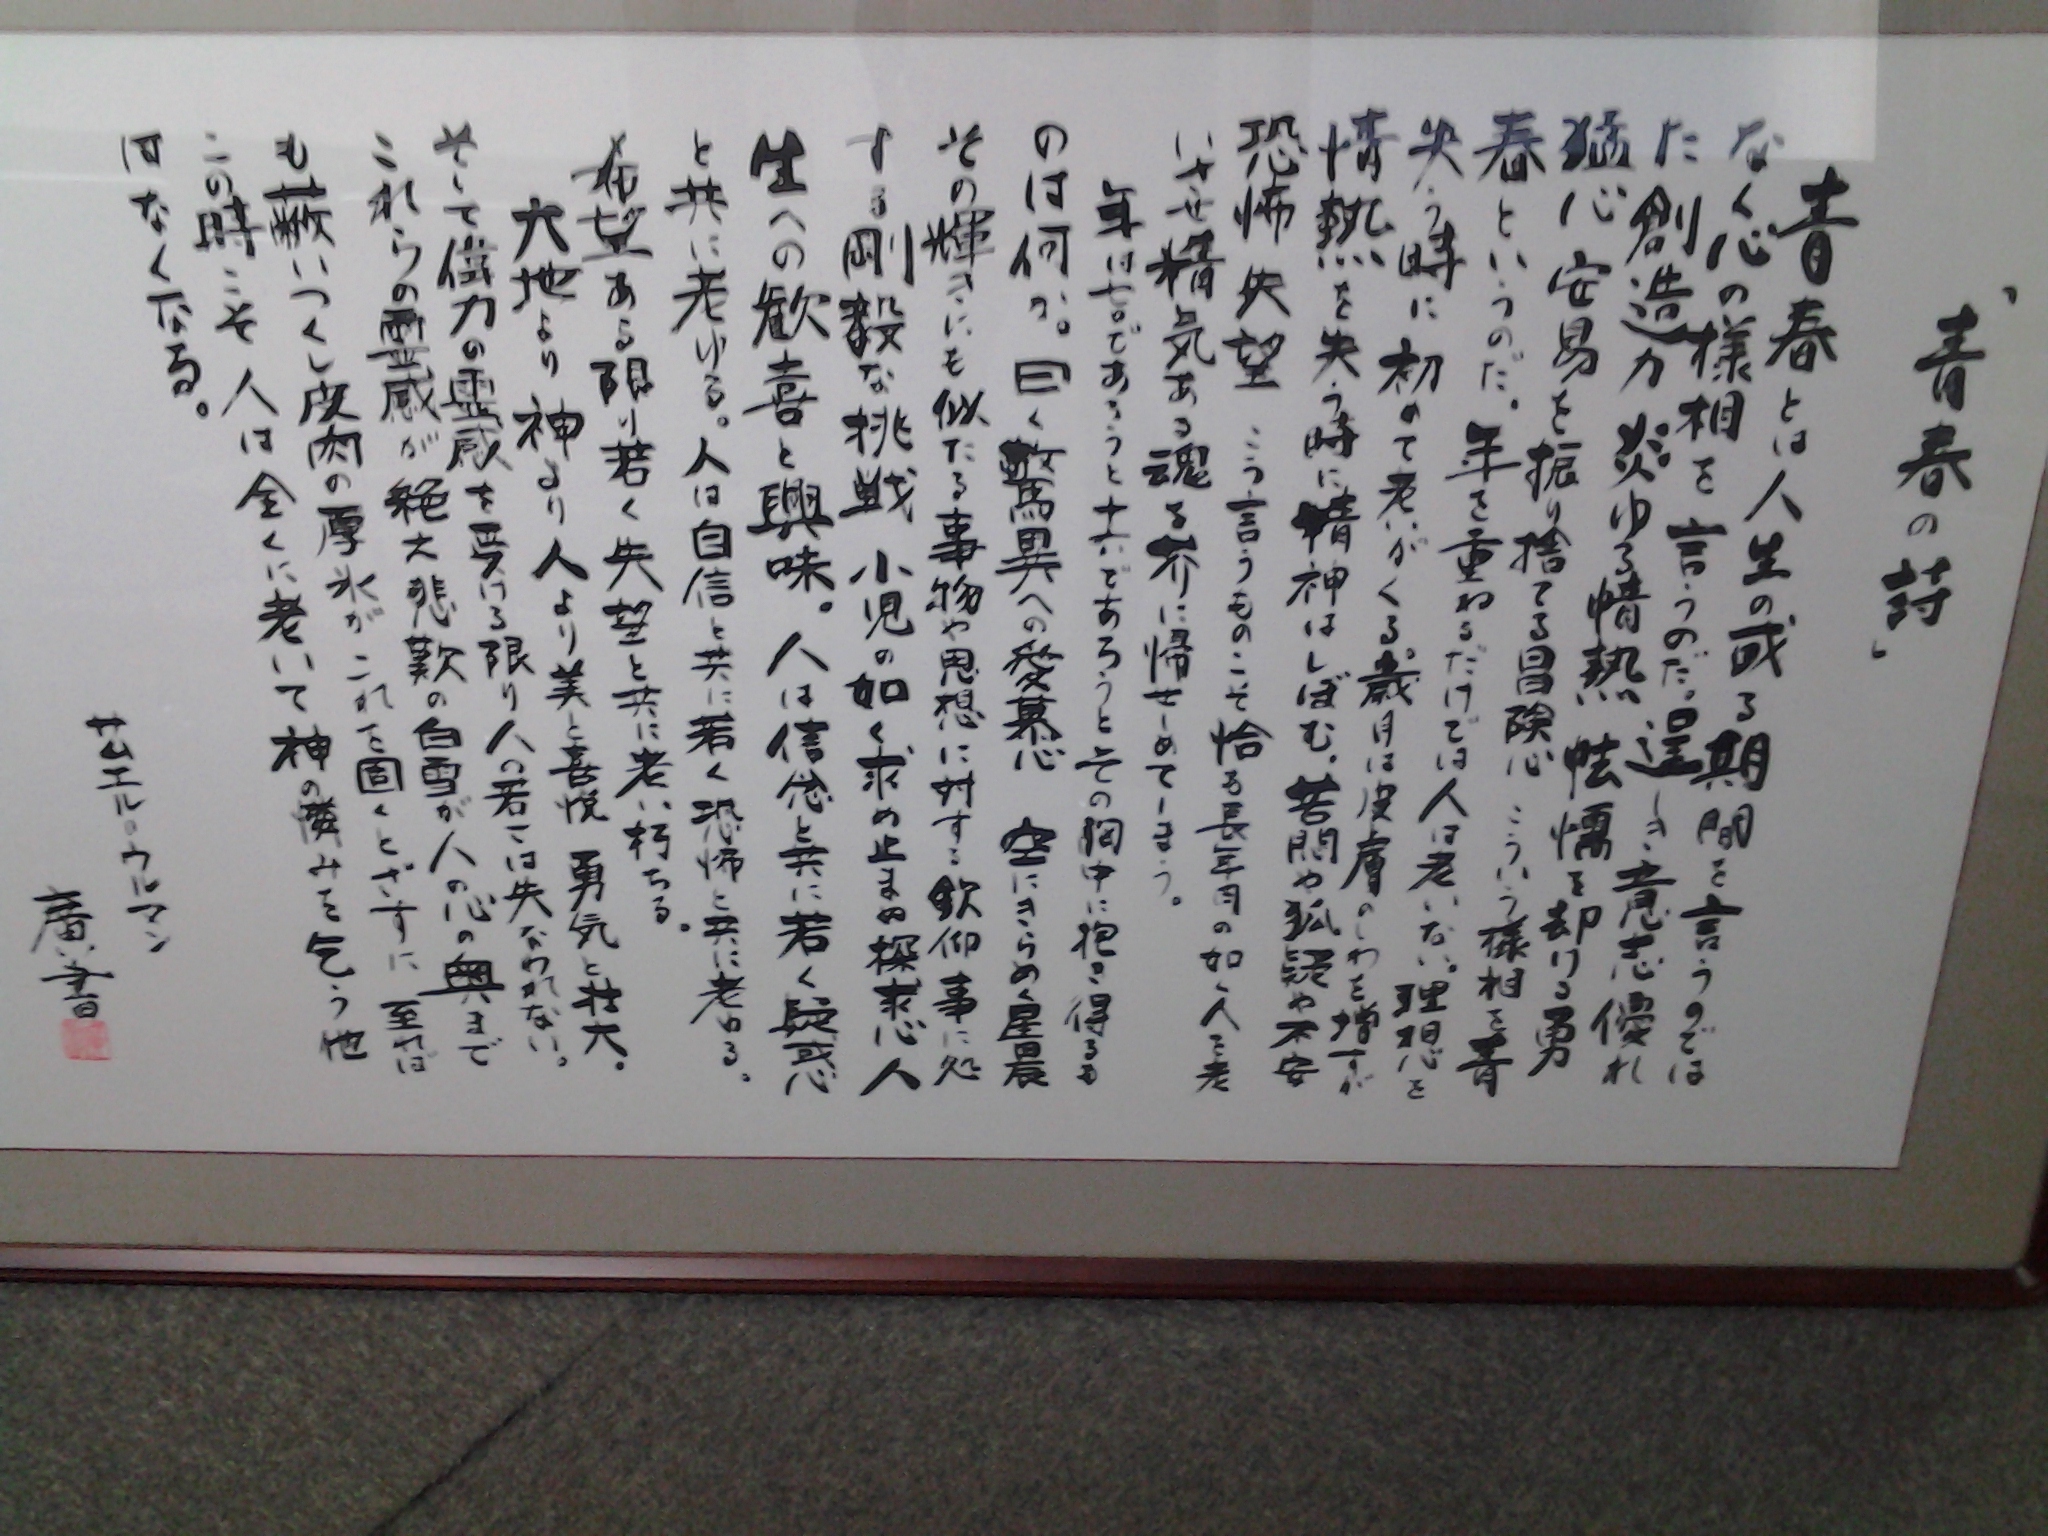 「青春の詩」
青春とは人生の或る期間を言うのでは
なく心の様相を言うのだ。逞しき意志優れ
た創造力炎ゆる情熱怯懦を却ける勇
猛心安易を振り捨てる冒険心こういう様相を青
春というのだ。年を重ねるだけでは人は老いない。理想を
失う時に初めて老いがくる。歳月は皮膚のしわを増すが
情熱を失う時に精神はしぼむ。苦悶や狐疑や不安
恐怖失望こう言うものこそ恰も長年月の如く人を老
いさせ精気ある魂をも芥に帰せしめてしまう。
年は七〇であろうと十六であろうとその胸中に抱き得るも
のは何か。曰く驚異への愛慕心空にきらめく星晨
その輝きにも似たる事物や思想に対する欽仰事に処
する剛毅な挑戦小児の如く求め止まぬ探求心人
生への歓喜と興味。人は信念と共に若く疑惑
と共に老いる。人は自信と共に若く恐怖と共に老ゆる。
希望ある限り若く失望と共に老い朽ちる。
大地より神より人より美と喜悦勇気と壮大。
そして偉力の霊感を受ける限り人の若さは失なわれない。
これらの霊感が絶え悲歎の白雪が人の心の奥まで
も蔽いつくし皮肉の厚氷がこれを固くとざすに至れば
この時こそ人は全くに老いて神の憐みを乞う他
はなくなる。
サムエル・ウルマン
廣山書